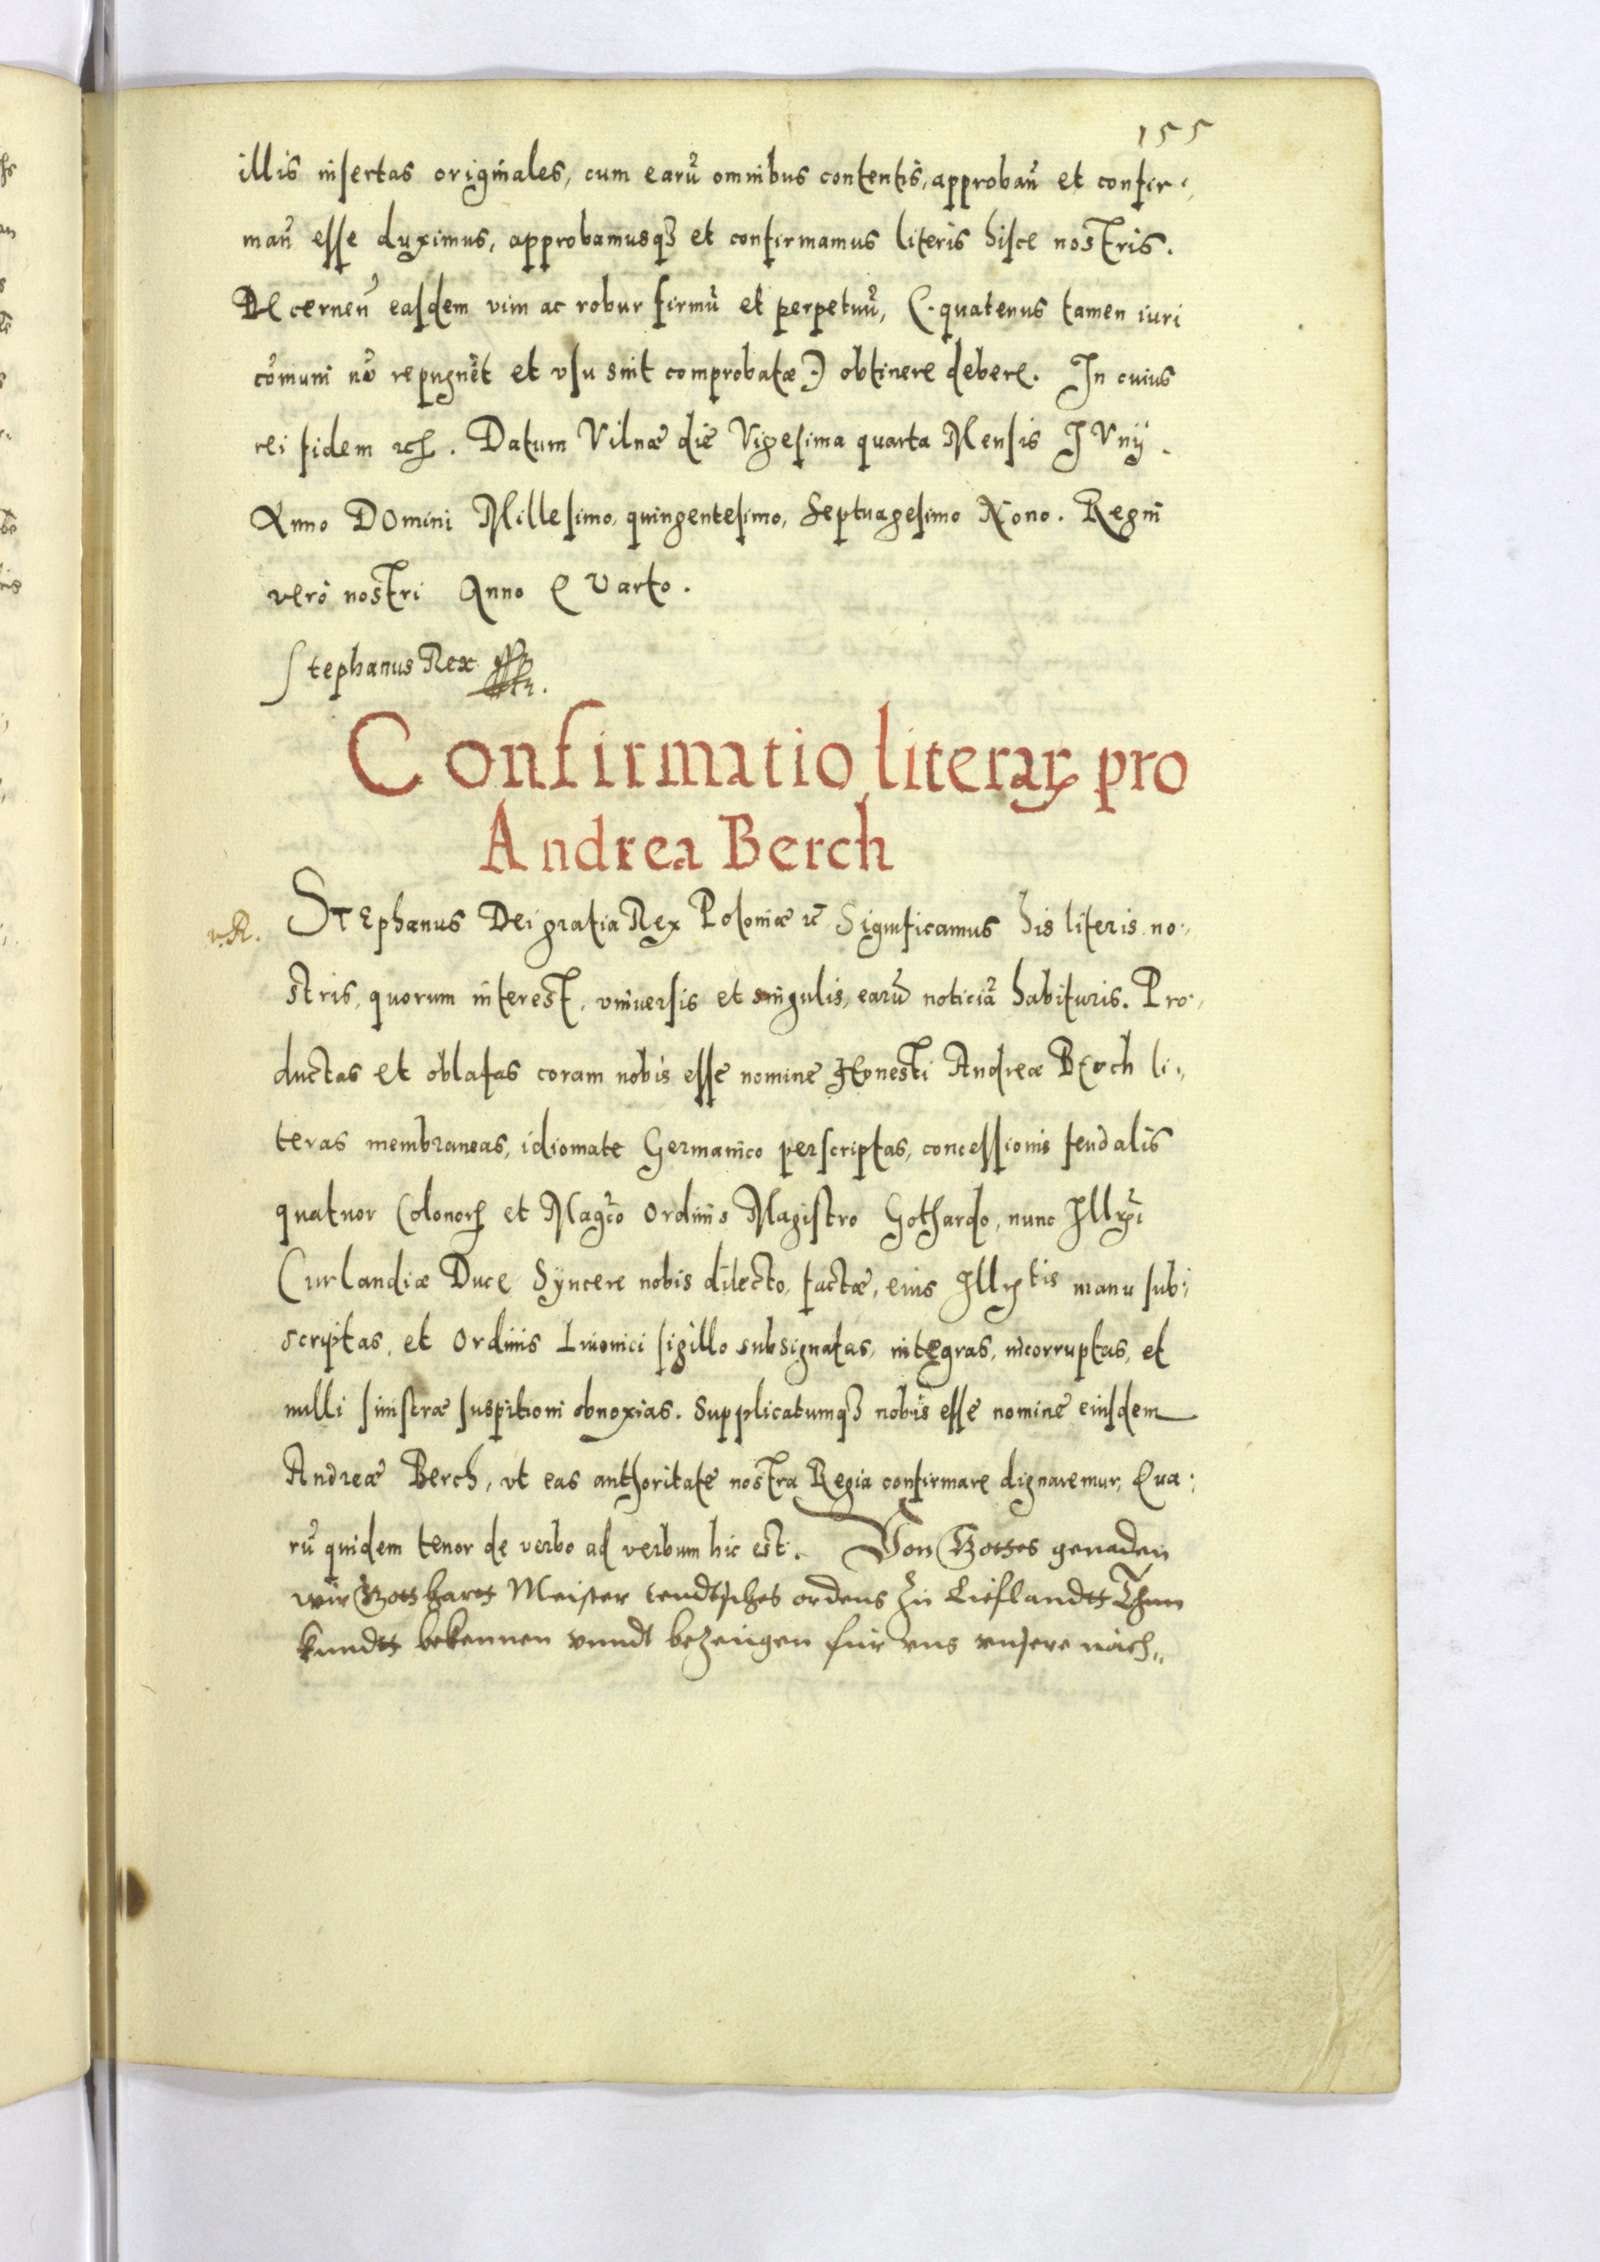 155
illis insertas originales, cum earũ omnibus contentis, approbañ et confir-
mañ esse duximus, approbamusq3 et confirmamus literis hisce nostris.
Decerneñ easdem vim ac robur firmũ et perpetuũ, (. quatenus tamen iuri
cõmuni nõ repugnẽt et vsu sint comprobatæ .) obtinere debere. In cuius
rei fidem . Datum Vilnæ die Vigesima quarta Mensis IVnij.
Anno DOmini Millesimo, quingentesimo, Septuagesimo Nono. Regni
vero nostri Anno QVarto.
Stephanus Rex
Confirmatio literaꝝ pro
Andrea Berch
STEphanus Dei gratia Rex Poloniæ Significamus his literis no-
stris, quorum interest, vniuersis et singulis, earũ noticiã habituris. Pro-
ductas et oblatas coram nobis esse nomine Honesti Andreæ Berch li-
teras membraneas, idiomate Germanico perscriptas, concessionis feudalis
quatuor Colonoꝝ et Magco Ordinis Magistro Gothardo, nunc Illri
Curlandiæ Duce Syncere nobis dilecto, factæ, eius Illrtis manu sub-
scriptas, et Ordinis Liuonici sigillo subsignatas, integras, incorruptas, et
nulli sinistræ suspitioni obnoxias. Supplicatumq3 nobis esse nomine eiusdem
Andreæ Berch, vt eas authoritate nostra Regia confirmare dignaremur, Qua-
rũ quidem tenor de verbo ad verbum hic est. Von Gottes genaden
wir Gotthartt Meister teudtsches ordens zu Lieflandtt Thun
kundtt bekennen vnndt bezeugen für vns vnsere nach„